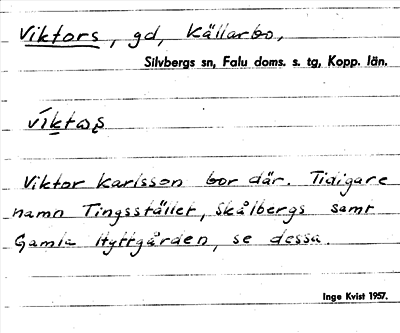 Viktors, gd, Källarbo,
Silvbergs sn, Falu doms. s. tg, Kopp. län.
Viktor Karlsson bor där. Tidigare
namn Tingsstället, Skålbergs samt
Gamla Hyttgården, se dessa.
Inge Kvist 1957.